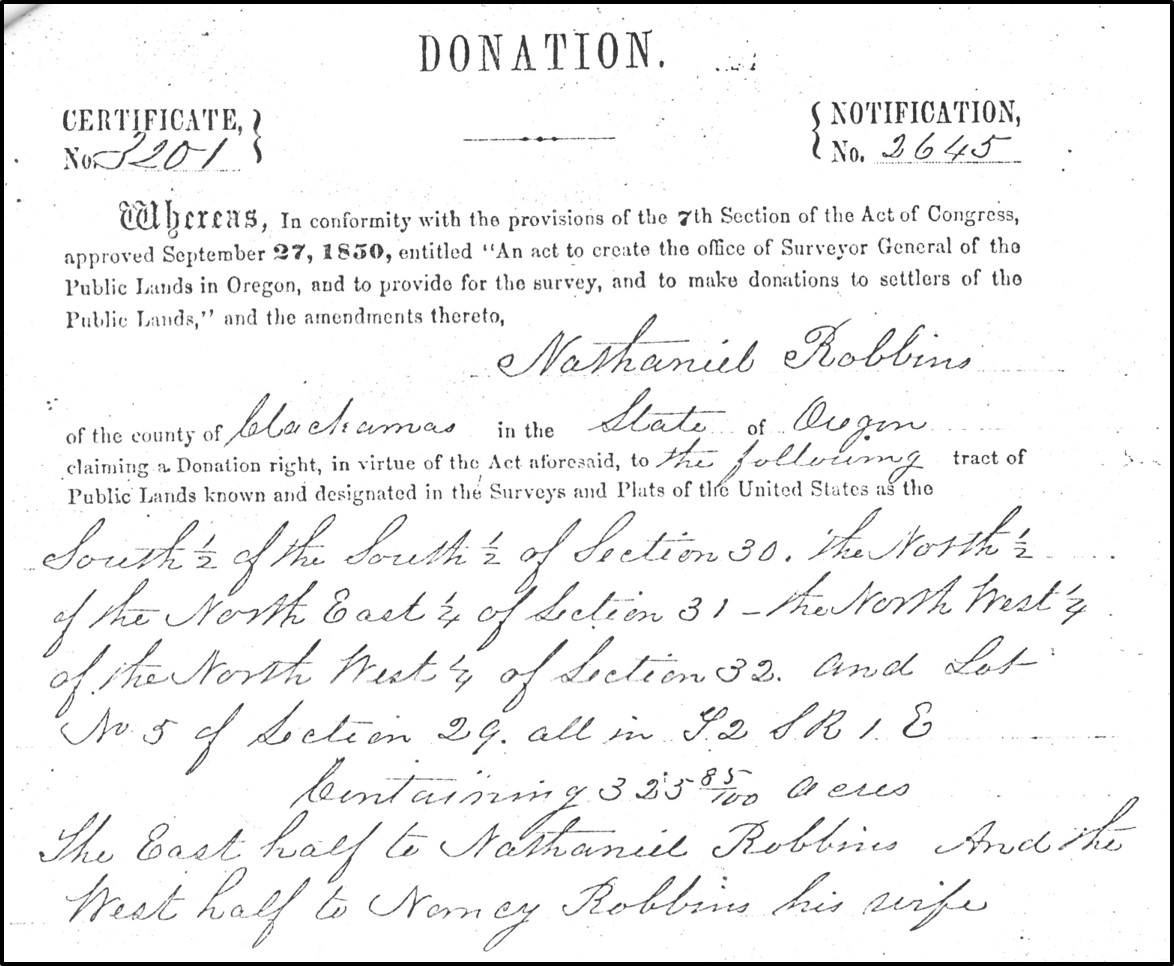 DONATION.
CERTIFICATE, No. 3201
NOTIFICATION, No. 2645
Whereas, In conformity with the provisions of the 7th Section of the Act of Congress,
approved September 27, 1850, entitled "An act to create the office of Surveyor General of the
Public Lands in Oregon, and to provide for the survey, and to make donations to settlers of the
Public Lands," and the amendments thereto,
Nathaniel Robbins
of the county of Clackamas in the State of Oregon
claiming a Donation right, in virtue of the Act aforesaid, to the following tract of
Public Lands known and designated in the Surveys and Plats of the United States as the
South ½ of the South ½ of Section 30. the North ½
of the North East ¼ of Section 31 - the North West ¼
of the North West ¼ of Section 32. and Lot
No 5 of Section 29. all in T2 S R 1 E
Containing 325 85/100 acres
The East half to Nathaniel Robbins And the
West half to Nancy Robbins his wife